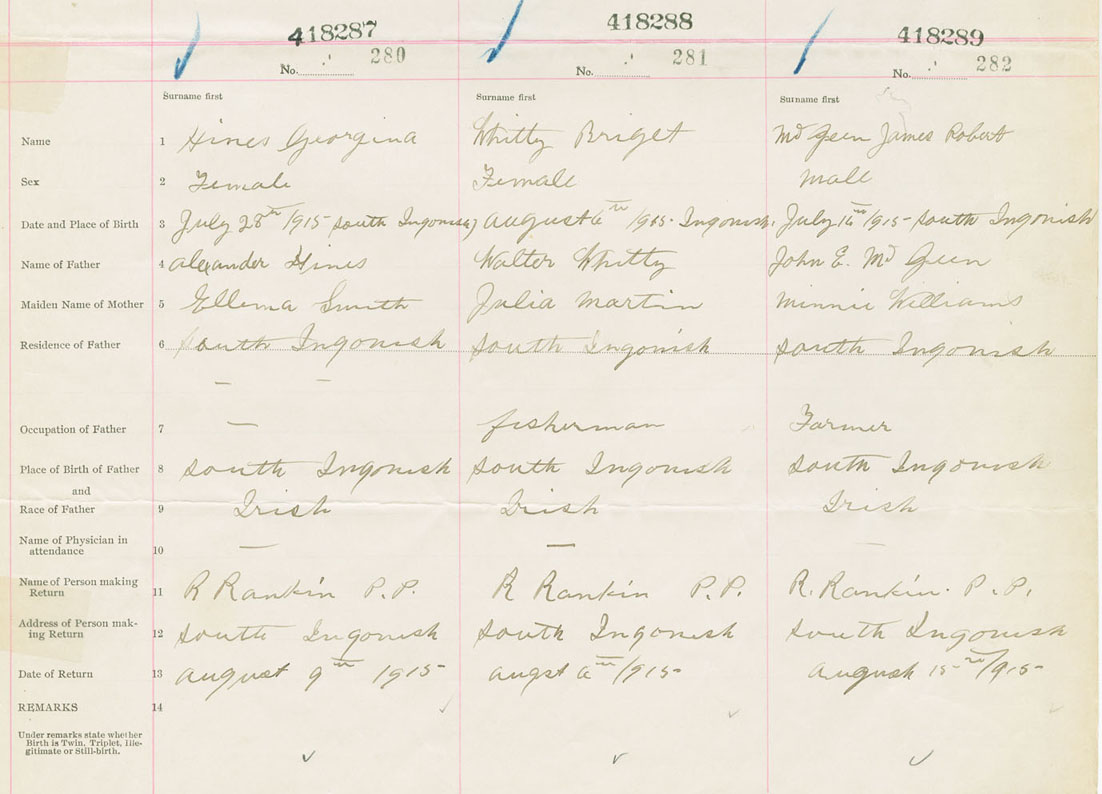 418287 418288 418289
No. 280 No. 281 No. 282
Surname first Surname first Surname first
Name 1 Hines Georgina Whitty Briget Mc Geen James Robert
Sex 2 Female Female Male
Date and Place of Birth 3 July 28th /915- South Ingonish august 6th /915- Ingonish. July 16th /915- South Ingonish
Name of Father 4 alexander Hines Walter Whitty John E. Mc Geen
Maiden Name of Mother 5 Ellema Smith Julia Martin Minnie Williams
Residence of Father 6 South Ingonish South Ingonish South Ingonish
— —
Occupation of Father 7 — fisherman Farmer
Place of Birth of Father 8 South Ingonish South Ingonish South Ingonish
and
Race of Father 9 Irish Irish Irish
Name of Physician in
attendance 10 — — —
Name of Person making
Return 11 R Rankin P.P. R Rankin P.P. R. Rankin. P.P.
Address of Person mak-
ing Return 12 South Ingonish South Ingonish South Ingonish
Date of Return 13 august 9th 1915- augst 6th /915- august 15th /915-
REMARKS 14
Under remarks state whether
Birth is Twin, Triplet, Ille-
gitimate or Still-birth.